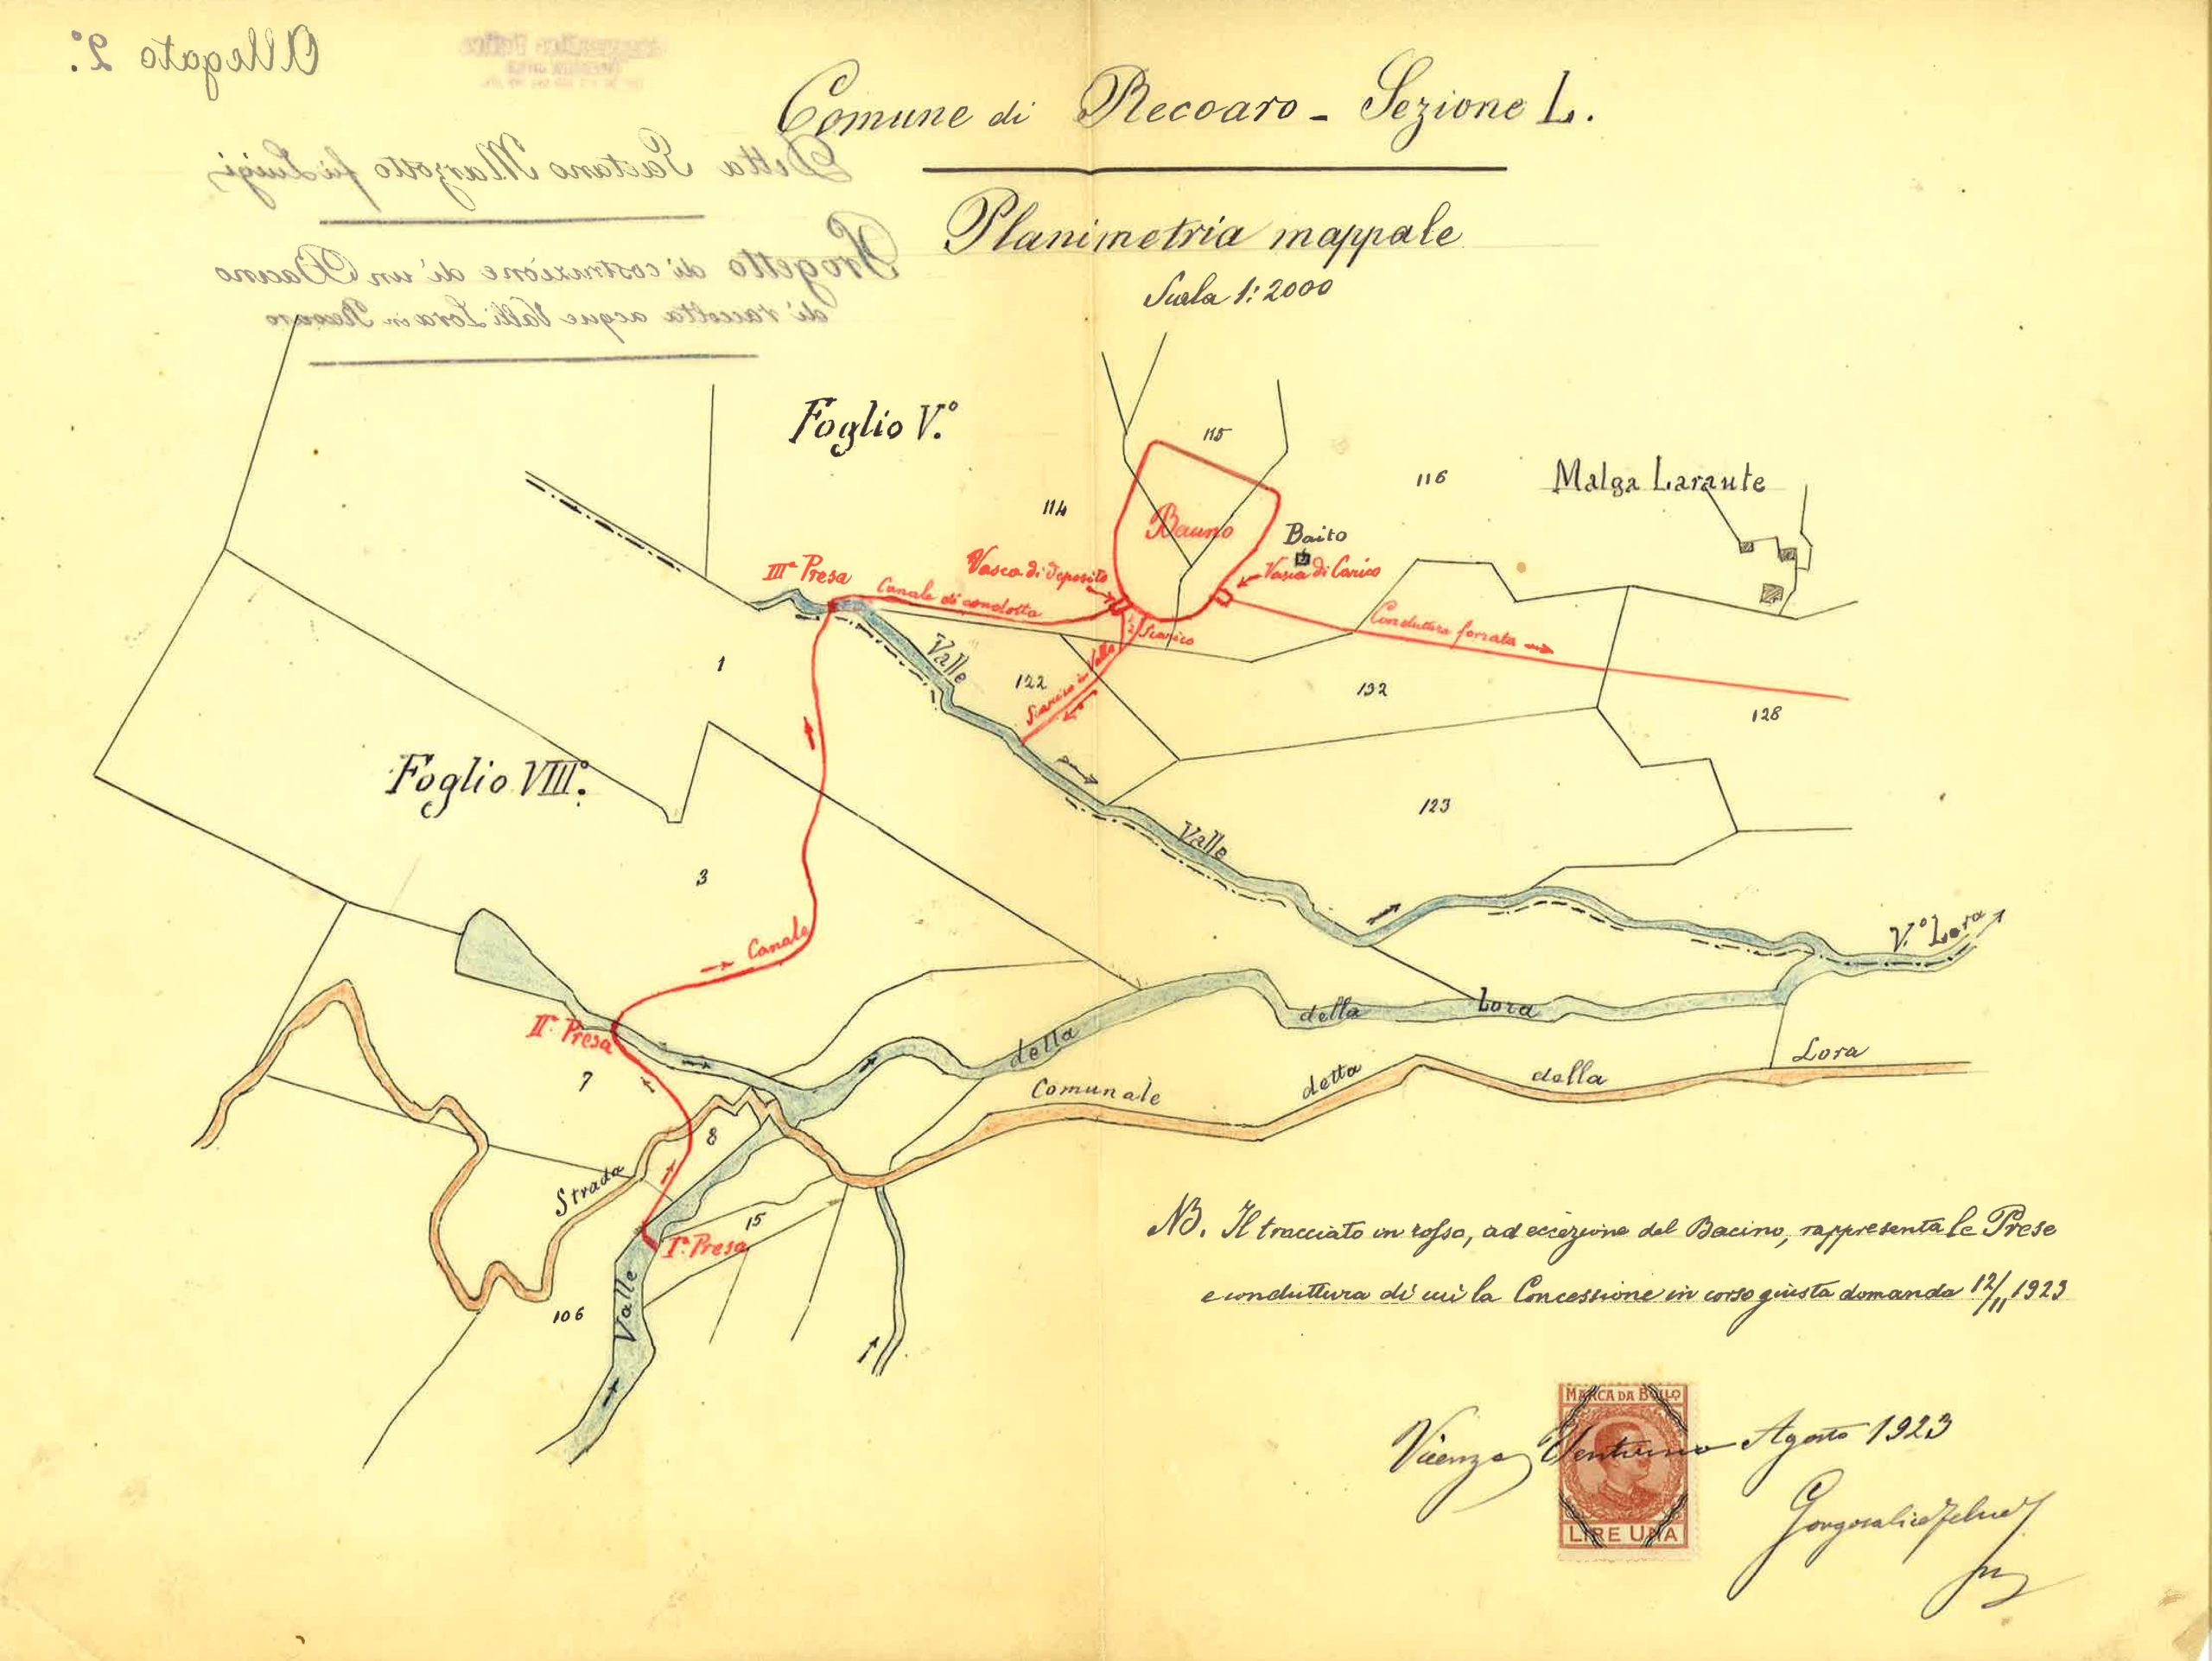 Allegato 2°.
Ditta Gaetano Marzotto fu Luigi
Progetto di costruzione di un Bacino
di raccolta acque Valli Lora in Recoaro
Comune di Recoaro - Sezione L.
Planimetria mappale
Scala 1:2000
Foglio V.°
115
116
Malga Laraute
114
Bacino
Baito
IIIª Presa
Canale di condotta
Vasca di deposito
Vasca di Carico
Scarico
Conduttura forzata
Valle
1
122
Scarico in Valle
132
128
Foglio VIII°.
123
Valle
3
Canale
V.° Lora
IIª Presa
della
della
Lora
7
Comunale
detta
della
Lora
8
Strada
15
Iª Presa
Valle
106
NB. Il tracciato in rosso, ad eccezione del Bacino, rappresenta le Prese
e conduttura di cui la Concessione in corso giusta domanda 12/11 1923
MARCA DA BOLLO
Vicenza Ventuno Agosto 1923
LIRE UNA